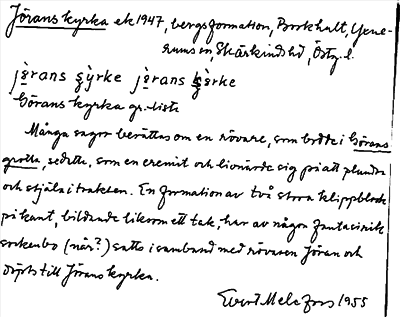 Jörans kyrka ek 1947, bergsformation, Borkhult, Yxne-
rums sn, Skärkinds hd, Östg. l.
jörans çýrke jörans çỳrke
Görans kyrka gr.-lista
Många sagor berättas om en rövare, som bodde i Görans
grotta, sedette, som en eremit och livnärde sig på att plundra
och stjäla i trakten. En formation av två stora klippblock
på kant, bildande likcom ett tak, har av någon fantasirik
sockenbo (när?) satts i samband med rövaren Jöran och
döpts till Jörans kyrka.
Evert Melefors 1955